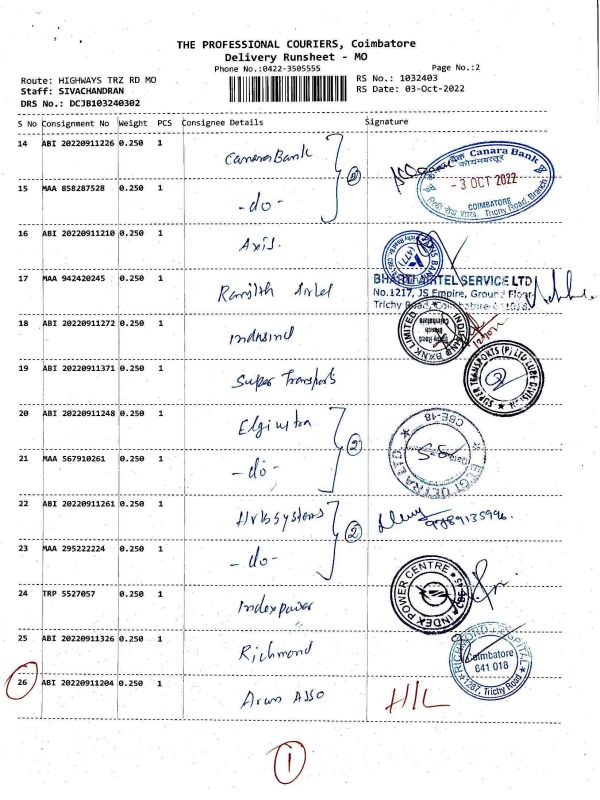 THE PROFESSIONAL COURIERS, Coimbatore
Delivery Runsheet - MO
Phone No.:0422-3505555
Page No.:2
Route: HIGHWAYS TRZ RD MO
RS No.: 1032403
Staff: SIVACHANDRAN
RS Date: 03-Oct-2022
DRS No.: DCJB103240302
S No Consignment No Weight PCS Consignee Details Signature
14 ABI 20220911226 0.250 1 Canara Bank
2
केनरा बैंक Canara Bank
कोयम्बत्तूर
- 3 OCT 2022
COIMBATORE
Trichy Road, Branch
15 MAA 858287528 0.250 1 -do-
16 ABI 20220911210 0.250 1 Axis.
17 MAA 942420245 0.250 1 Ranjith Airtel
BHARTI AIRTEL SERVICE LTD
No.1217, JS Empire, Ground Floor
Trichy Road, Coimbatore
18 ABI 20220911272 0.250 1 Indusind
INDUSIND BANK LIMITED
Trichy Road
Branch
Coimbatore
19 ABI 20220911371 0.250 1 Super Transports
SUPER TRANSPORTS (P) LTD LUBE DIVISION
20 ABI 20220911248 0.250 1 Elgiultra
2
ELGI ULTRA
CBE-18
21 MAA 567910261 0.250 1 -do-
22 ABI 20220911261 0.250 1 Hrbssystems
2
9789135996.
23 MAA 295222224 0.250 1 -do-
24 TRP 5527057 0.250 1 Indexpower
INDEX POWER CENTRE
25 ABI 20220911326 0.250 1 Richmond
RICHMOND HOSPITAL
Coimbatore
641 018
1287, Trichy Road
26 ABI 20220911204 0.250 1 Arun ASSO
H/L
1